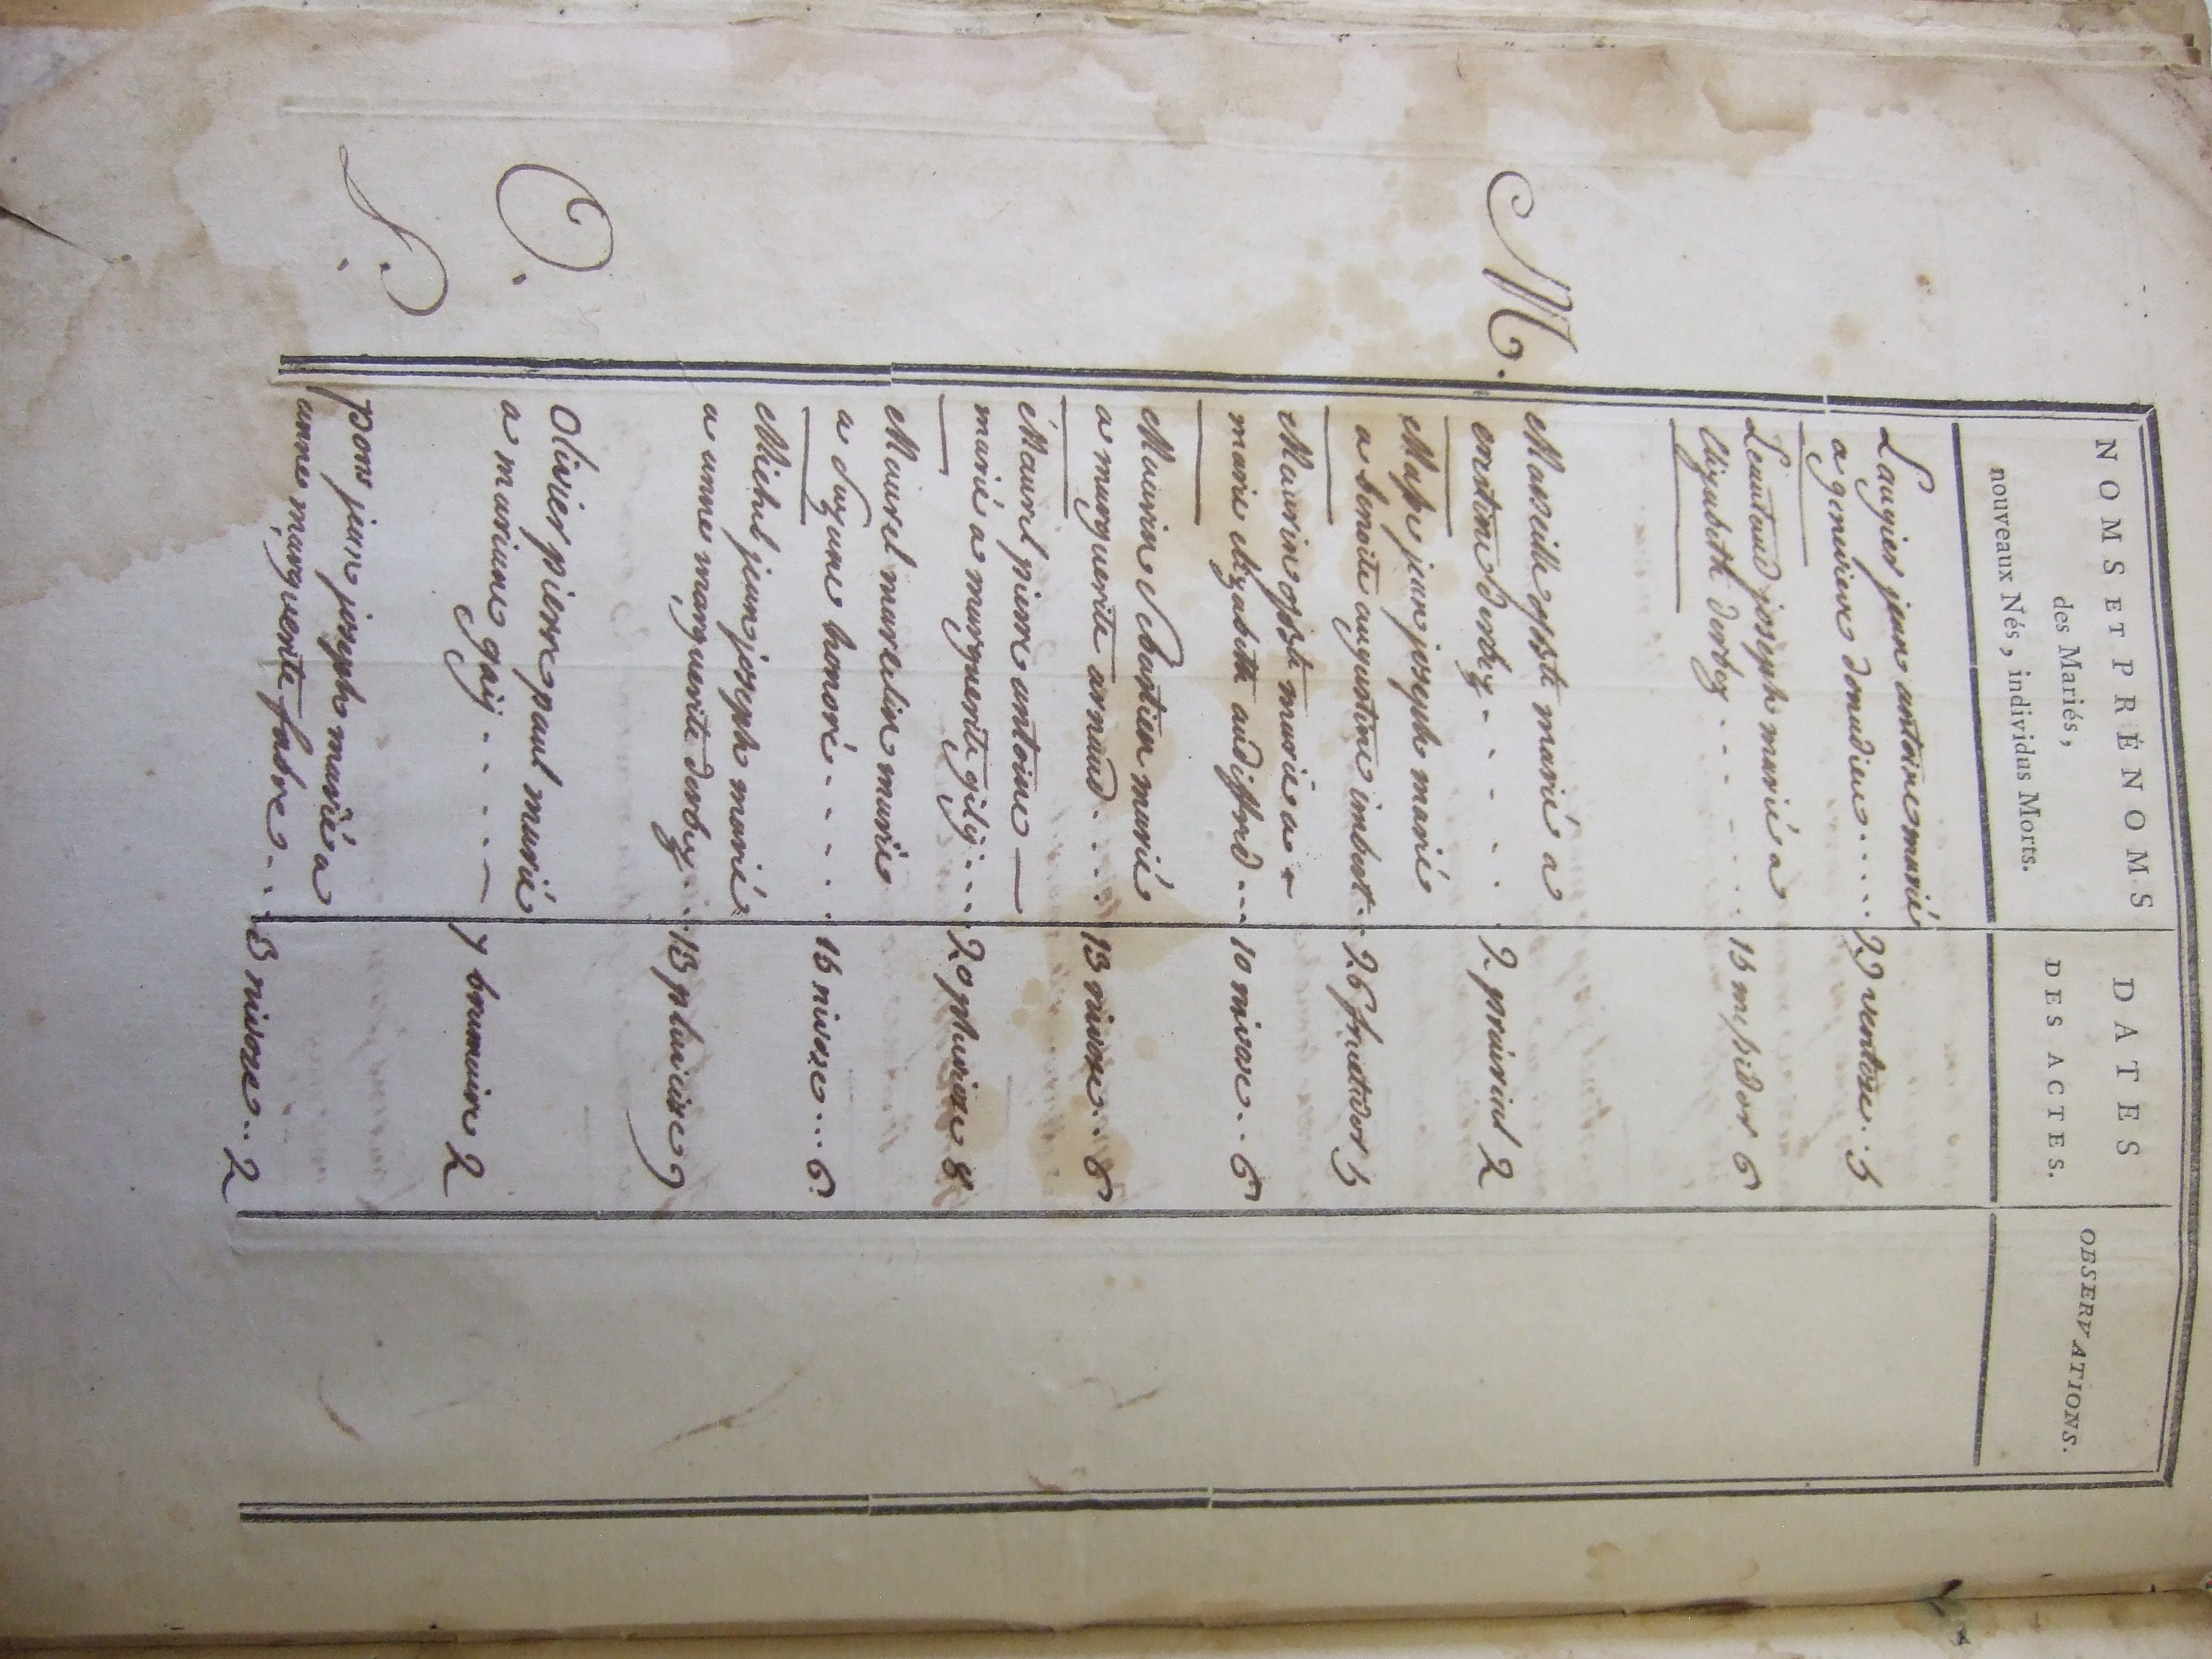 NOMS ET PRÉNOMS
des Mariés,
nouveaux Nés, individus Morts.
DATES
DES ACTES.
OBSERVATIONS.
Laugier jean antoine marié
a geneviève donadieu..... 29 ventose. 5
Leautaud joseph marié a
Elizabeth derbez..... 15 messidor 6
M.
Marseille
marié a
derbez..... 2 prairial 2
Masse jean joseph marié
a benoite augustine imbert.. 26 fructidor 5
Maurin marié a
marie elizabeth audiffred... 10 nivose.. 6
Maurin Sebastien marié
a marguerite arnaud.... 13 nivose.. 8
Maurel pierre antoine —
marié a marguerite gilij.... 20 pluviose 8
Maurel marcelin marié
a Suzane honoré..... 16 nivose... 6.
Michel jean joseph marié
a anne marguerite derbez.. 13 pluviose 9
O.
Olivier pierre paul marié
a mariane gaij..... 7 brumaire 2
P.
pons jean joseph marié a
anne marguerite fabre... 3 nivose.. 2